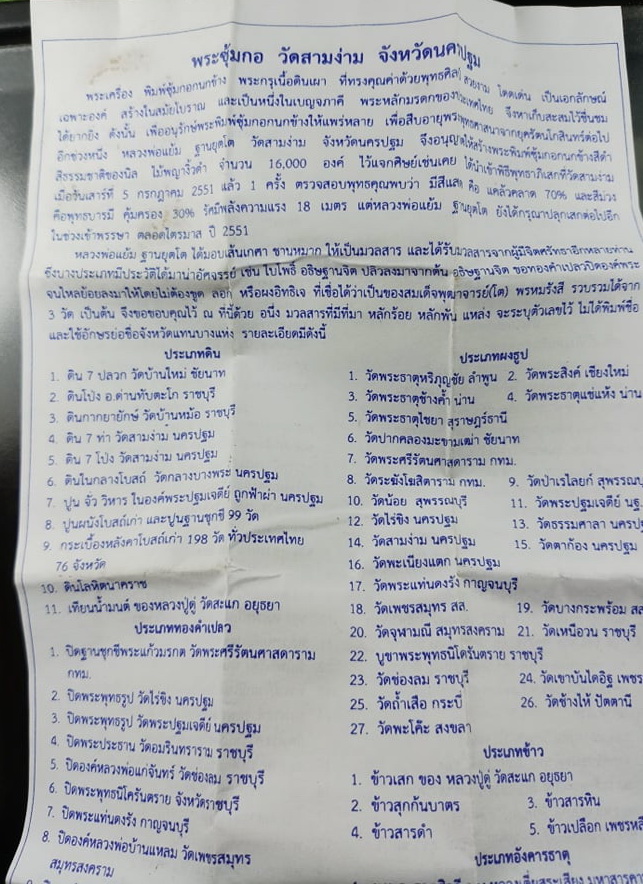 พระซุ้มกอ วัดสามง่าม จังหวัดนครปฐม
พระเครื่อง พิมพ์ซุ้มกอกนกข้าง พระกรุเนื้อดินเผา ที่ทรงคุณค่าด้วยพุทธศิลป์ สวยงาม โดดเด่น เป็นเอกลักษณ์
เฉพาะองค์ สร้างในสมัยโบราณ และเป็นหนึ่งในเบญจภาคี พระหลักมรดกของประเทศไทย จึงหาเก็บสะสมไว้ชื่นชม
ได้ยากยิ่ง ดังนั้น เพื่ออนุรักษ์พระพิมพ์ซุ้มกอกนกข้างให้แพร่หลาย เพื่อสืบอายุพระพุทธศาสนาจากยุครัตนโกสินทร์ต่อไป
อีกช่วงหนึ่ง หลวงพ่อแย้ม ฐานยุตฺโต วัดสามง่าม จังหวัดนครปฐม จึงอนุญาตให้สร้างพระพิมพ์ซุ้มกอกนกข้างสีดำ
สีธรรมชาติของนิล ไม้พญางิ้วดำ จำนวน 16,000 องค์ ไว้แจกศิษย์เช่นเคย ได้นำเข้าพิธีพุทธาภิเสกที่วัดสามง่าม
เมื่อวันเสาร์ที่ 5 กรกฎาคม 2551 แล้ว 1 ครั้ง ตรวจสอบพุทธคุณพบว่า มีสีแสด คือ แคล้วคลาด 70% และสีม่วง
คือพุทธบารมี คุ้มครอง 30% รัศมีพลังความแรง 18 เมตร แต่หลวงพ่อแย้ม ฐานยุตฺโต ยังได้กรุณาปลุกเสกต่อไปอีก
ในช่วงเข้าพรรษา ตลอดไตรมาส ปี 2551
หลวงพ่อแย้ม ฐานยุตฺโต ได้มอบเส้นเกศา ชานหมาก ให้เป็นมวลสาร และได้รับมวลสารจากผู้มีจิตศรัทธาอีกหลายท่าน
ซึ่งบางประเภทมีประวัติได้มาน่าอัศจรรย์ เช่น ใบโพธิ์ อธิษฐานจิต ปลิวลงมาจากต้น อธิษฐานจิต ขอทองคำเปลวปิดองค์พระ
จนไหลย้อยลงมาให้โดยไม่ต้องขูด ลอก หรือผงอิทธิเจ ที่เชื่อได้ว่าเป็นของสมเด็จพุฒาจารย์(โต) พรหมรังสี รวบรวมได้จาก
3 วัด เป็นต้น จึงขอขอบคุณไว้ ณ ที่นี้ด้วย อนึ่ง มวลสารที่มีที่มา หลักร้อย หลักพัน แหล่ง จะระบุตัวเลขไว้ ไม่ได้พิมพ์ชื่อ
และใช้อักษรย่อชื่อจังหวัดแทนบางแห่ง รายละเอียดมีดังนี้
ประเภทดิน
1. ดิน 7 ปลวก วัดบ้านใหม่ ชัยนาท
2. ดินโป่ง อ.ด่านทับตะโก ราชบุรี
3. ดินกากยายักษ์ วัดบ้านหม้อ ราชบุรี
4. ดิน 7 ท่า วัดสามง่าม นครปฐม
5. ดิน 7 โป่ง วัดสามง่าม นครปฐม
6. ดินในกลางโบสถ์ วัดกลางบางพระ นครปฐม
7. ปูน จั่ว วิหาร ในองค์พระปฐมเจดีย์ ถูกฟ้าผ่า นครปฐม
8. ปูนผนังโบสถ์เก่า และปูนฐานชุกชี 99 วัด
9. กระเบื้องหลังคาโบสถ์เก่า 198 วัด ทั่วประเทศไทย
76 จังหวัด
10. ดินโลหิตนาคราช
11. เทียนน้ำมนต์ ของหลวงปู่ดู่ วัดสะแก อยุธยา
ประเภททองคำเปลว
1. ปิดฐานชุกชีพระแก้วมรกต วัดพระศรีรัตนศาสดาราม
กทม.
2. ปิดพระพุทธรูป วัดไร่ขิง นครปฐม
3. ปิดพระพุทธรูป วัดพระปฐมเจดีย์ นครปฐม
4. ปิดพระประธาน วัดอมรินทราราม ราชบุรี
5. ปิดองค์หลวงพ่อแก่นจันทร์ วัดช่องลม ราชบุรี
6. ปิดพระพุทธนิโครันตราย จังหวัดราชบุรี
7. ปิดพระแท่นดงรัง กาญจนบุรี
8. ปิดองค์หลวงพ่อบ้านแหลม วัดเพชรสมุทร
สมุทรสงคราม
ประเภทผงธูป
1. วัดพระธาตุหริภุญชัย ลำพูน 2. วัดพระสิงค์ เชียงใหม่
3. วัดพระธาตุช้างค้ำ น่าน 4. วัดพระธาตุแช่แห้ง น่าน
5. วัดพระธาตุไชยา สุราษฎร์ธานี
6. วัดปากคลองมะขามเฒ่า ชัยนาท
7. วัดพระศรีรัตนศาสดาราม กทม.
8. วัดระฆังโฆสิตาราม กทม. 9. วัดป่าเรไลยก์ สุพรรณบุ
10. วัดน้อย สุพรรณบุรี 11. วัดพระปฐมเจดีย์ นฐ.
12. วัดไร่ขิง นครปฐม 13. วัดธรรมศาลา นครปฐ
14. วัดสามง่าม นครปฐม 15. วัดตาก้อง นครปฐม
16. วัดพะเนียงแตก นครปฐม
17. วัดพระแท่นดงรัง กาญจนบุรี
18. วัดเพชรสมุทร สส. 19. วัดบางกระพร้อม สส
20. วัดจุฬามณี สมุทรสงคราม 21. วัดเหนือวน ราชบุรี
22. บูชาพระพุทธนิโครันตราย ราชบุรี
23. วัดช่องลม ราชบุรี 24. วัดเขาบันไดอิฐ เพชร
25. วัดถ้ำเสือ กระบี่ 26. วัดช้างให้ ปัตตานี
27. วัดพะโค๊ะ สงขลา
ประเภทข้าว
1. ข้าวเสก ของ หลวงปู่ดู่ วัดสะแก อยุธยา
2. ข้าวสุกก้นบาตร 3. ข้าวสารหิน
4. ข้าวสารดำ 5. ข้าวเปลือก เพชรหลี
ประเภทอังคารธาตุ